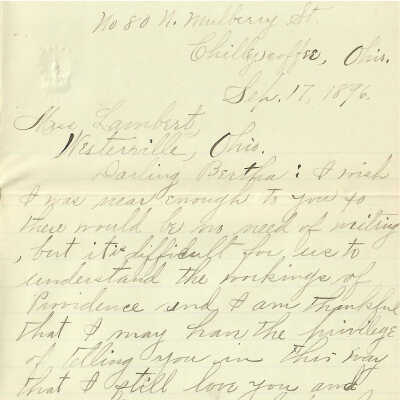 No 80 N. Mulberry St.
Chillycoffee, Ohio.
Sep. 17, 1896.
Miss Lambert,
Westerville, Ohio.
Darling Bertha: I wish
I was near enough to you so
there would be no need of writing
, but it is difficult for us to
understand the workings of
Providence and I am thankful
that I may have the privilege
of telling you in this way
that I still love you and